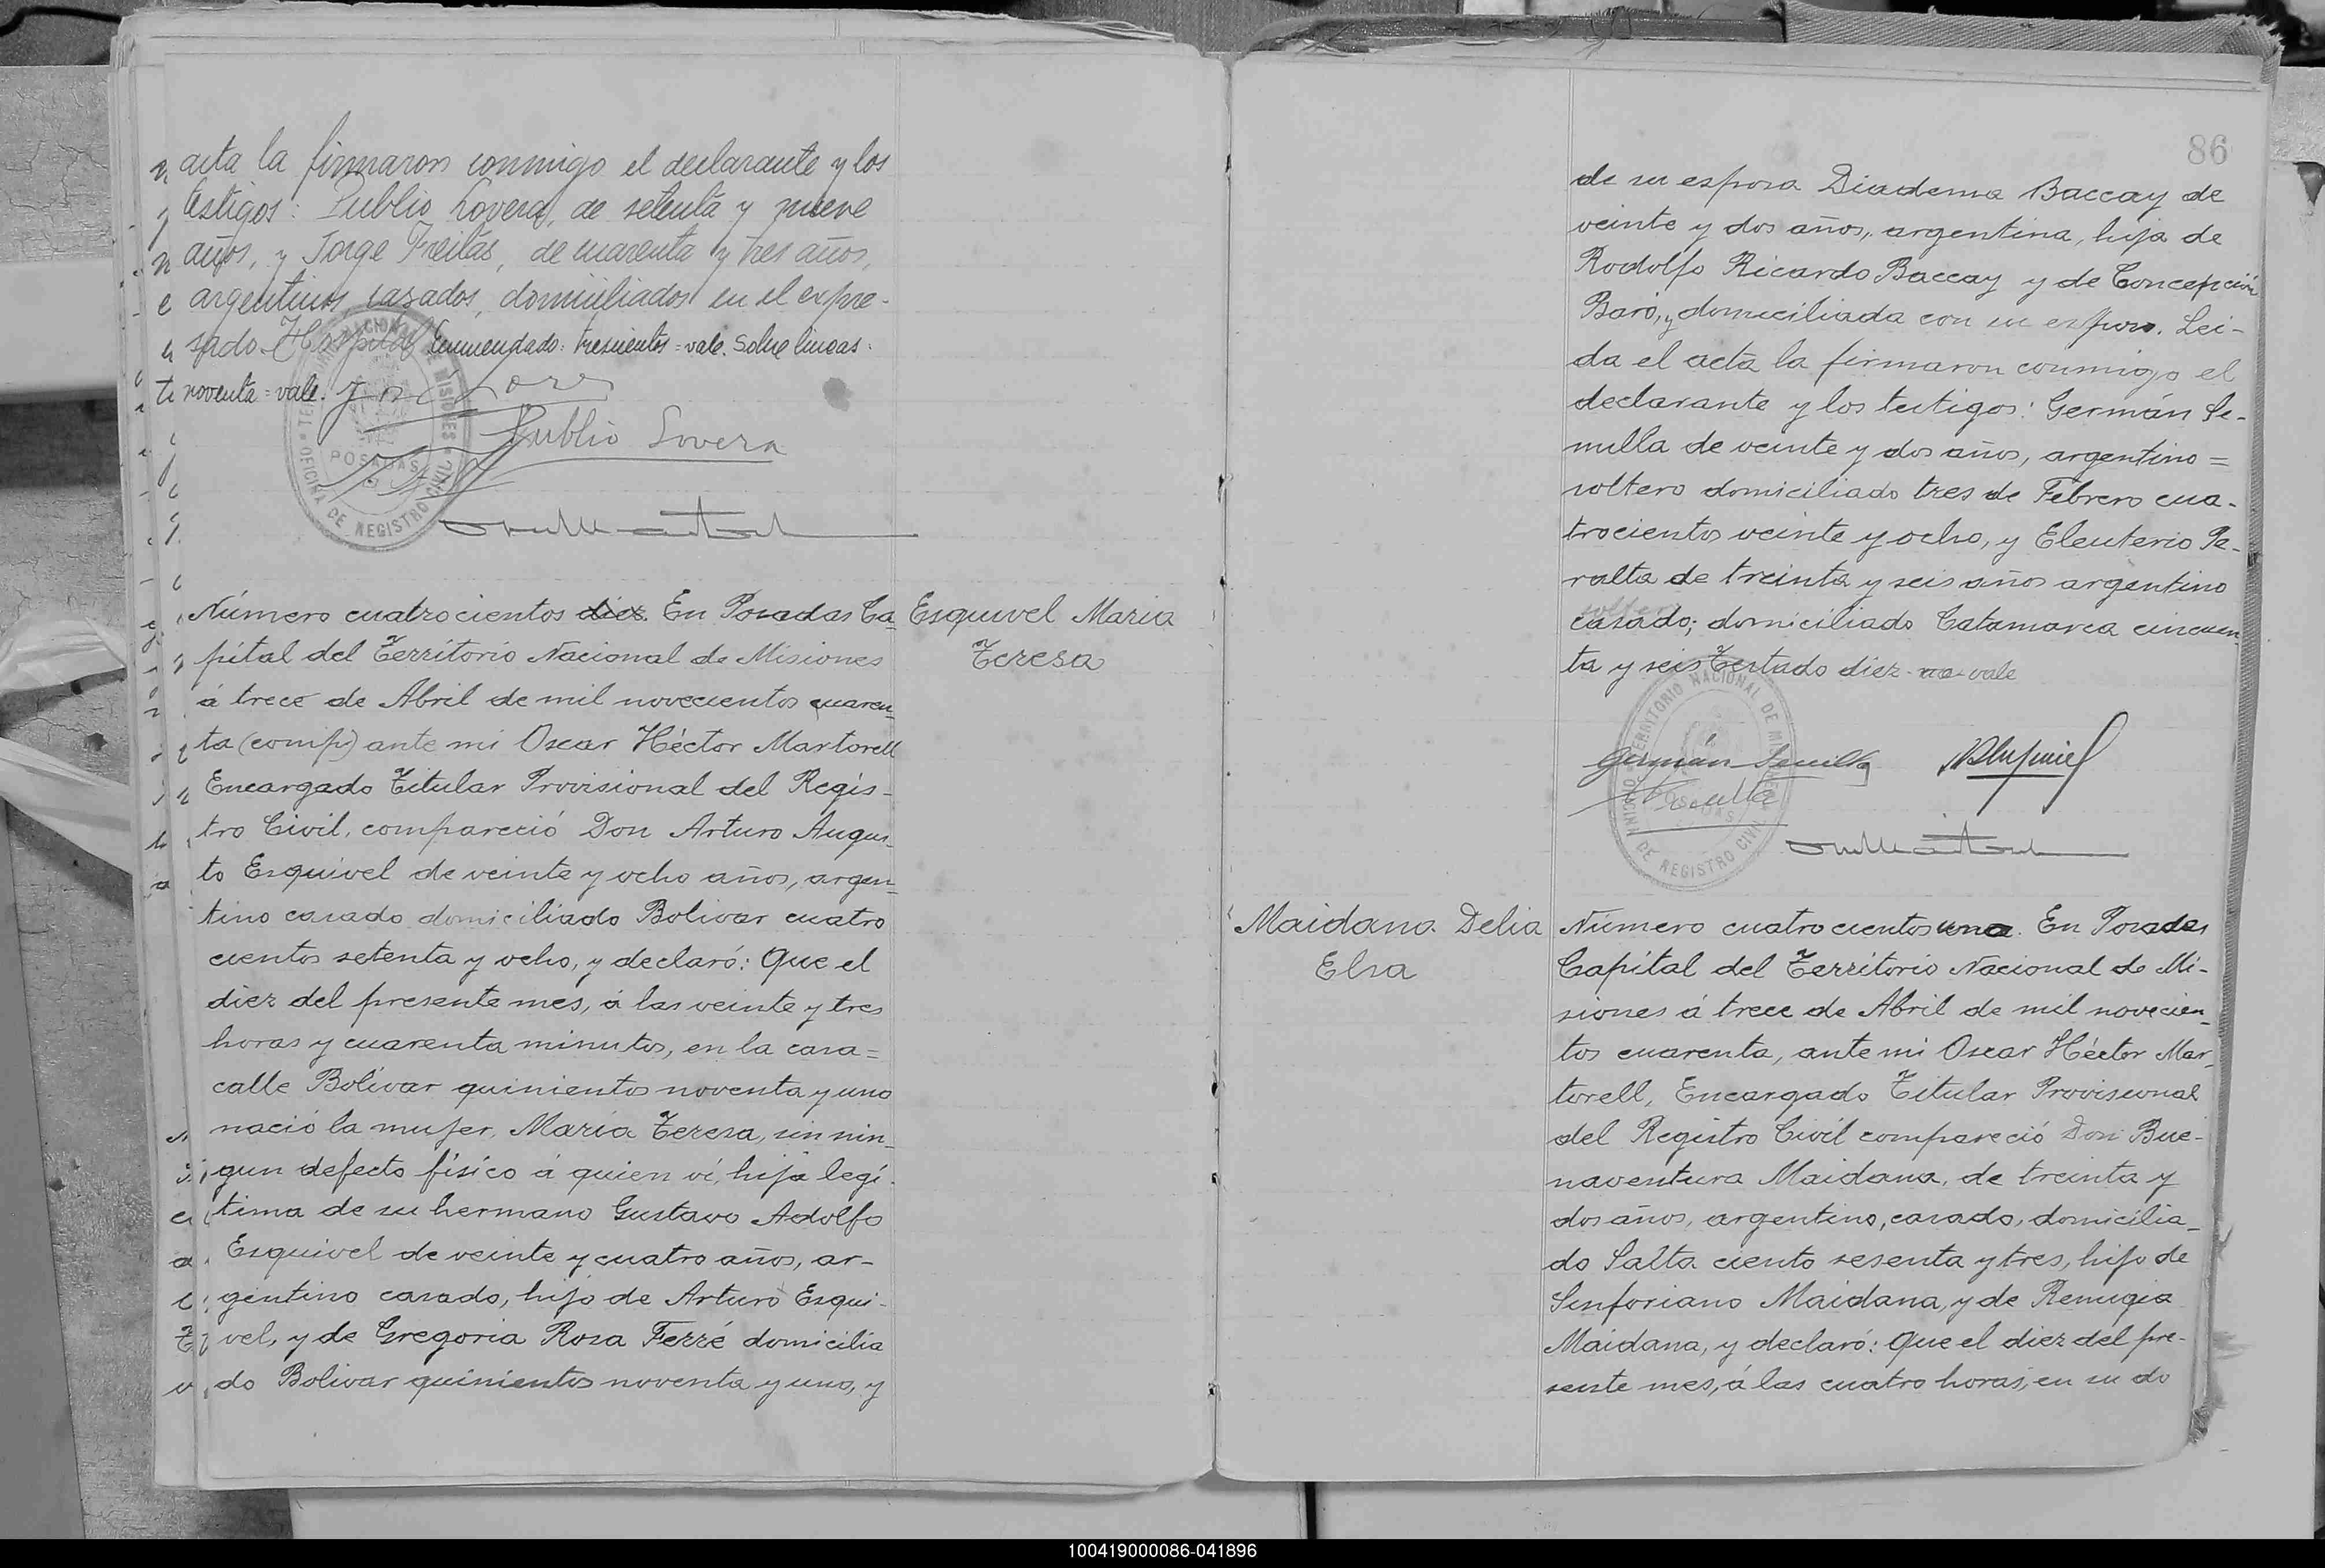 acta la firmaron conmigo el declarante y los
testigos: Publio Lovera, de setenta y nueve
años, y Jorge Freitas, de cuarenta y tres años,
argentinos, casados, domiciliados en el expre-
sado Hospital Enmendado: trescientos = vale. Sobre lineas:
noventa = vale.
Publio Lovera
TERRITORIO NACIONAL DE MISIONES
POSADAS
OFICINA DE REGISTRO CIVIL
Número cuatrocientos diez. En Posadas Ca
pital del Territorio Nacional de Misiones
á trece de Abril de mil novecientos cuaren
ta (comp) ante mi Oscar Héctor Martorell
Encargado Titular Provisional del Regis-
tro Civil, compareció Don Arturo Augus
to Esquivel de veinte y ocho años, argen
tino casado domiciliado Bolivar cuatro
cientos setenta y ocho, y declaró: Que el
diez del presente mes, á las veinte y tres
horas y cuarenta minutos, en la casa =
calle Bolívar quinientos noventa y uno
nació la mujer, María Teresa, sin nin
gun defecto físico á quien ví, hija legí
tima de su hermano Gustavo Adolfo
Esquivel de veinte y cuatro años, ar-
gentino casado, hijo de Arturo Esqui-
vel, y de Gregoria Rosa Ferré domicilia
do Bolivar quinientos noventa y uno, y
Esquivel Maria
Teresa
86
de su esposa Diadema Baccay de
veinte y dos años, argentina, hija de
Rodolfo Ricardo Baccay y de Concepción
Baró, y domiciliada con su esposo. Lei-
da el acta la firmaron conmigo el
declarante y los testigos: Germán Se-
nulla de veinte y dos años, argentino =
soltero domiciliado tres de Febrero cua-
trocientos veinte y ocho, y Eleuterio Pe-
ralta de treinta y seis años argentino
casado; domiciliado Catamarca cincuen
ta y seis Testado diez - no vale
TERRITORIO NACIONAL DE MISIONES
POSADAS
OFICINA DE REGISTRO CIVIL
Maidana Delia
Elsa
Número cuatrocientos uno. En Posadas
Capital del Territorio Nacional de Mi-
siones á trece de Abril de mil novecien
tos cuarenta, ante mi Oscar Héctor Mar
torell, Encargado Titular Provisional
del Registro Civil compareció Don Bue-
naventura Maidana, de treinta y
dos años, argentino, casado, domicilia_
do Salta ciento sesenta y tres, hijo de
Sinforiano Maidana, y de Remigia
Maidana, y declaró: Que el diez del pre-
sente mes, á las cuatro horas, en su do
100419000086-041896